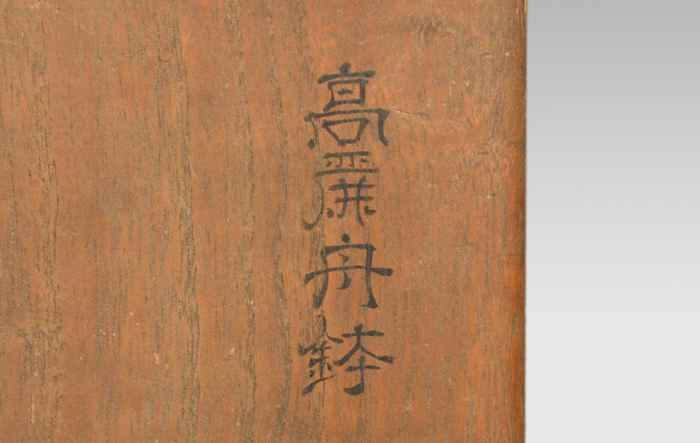 高麗舟鉢